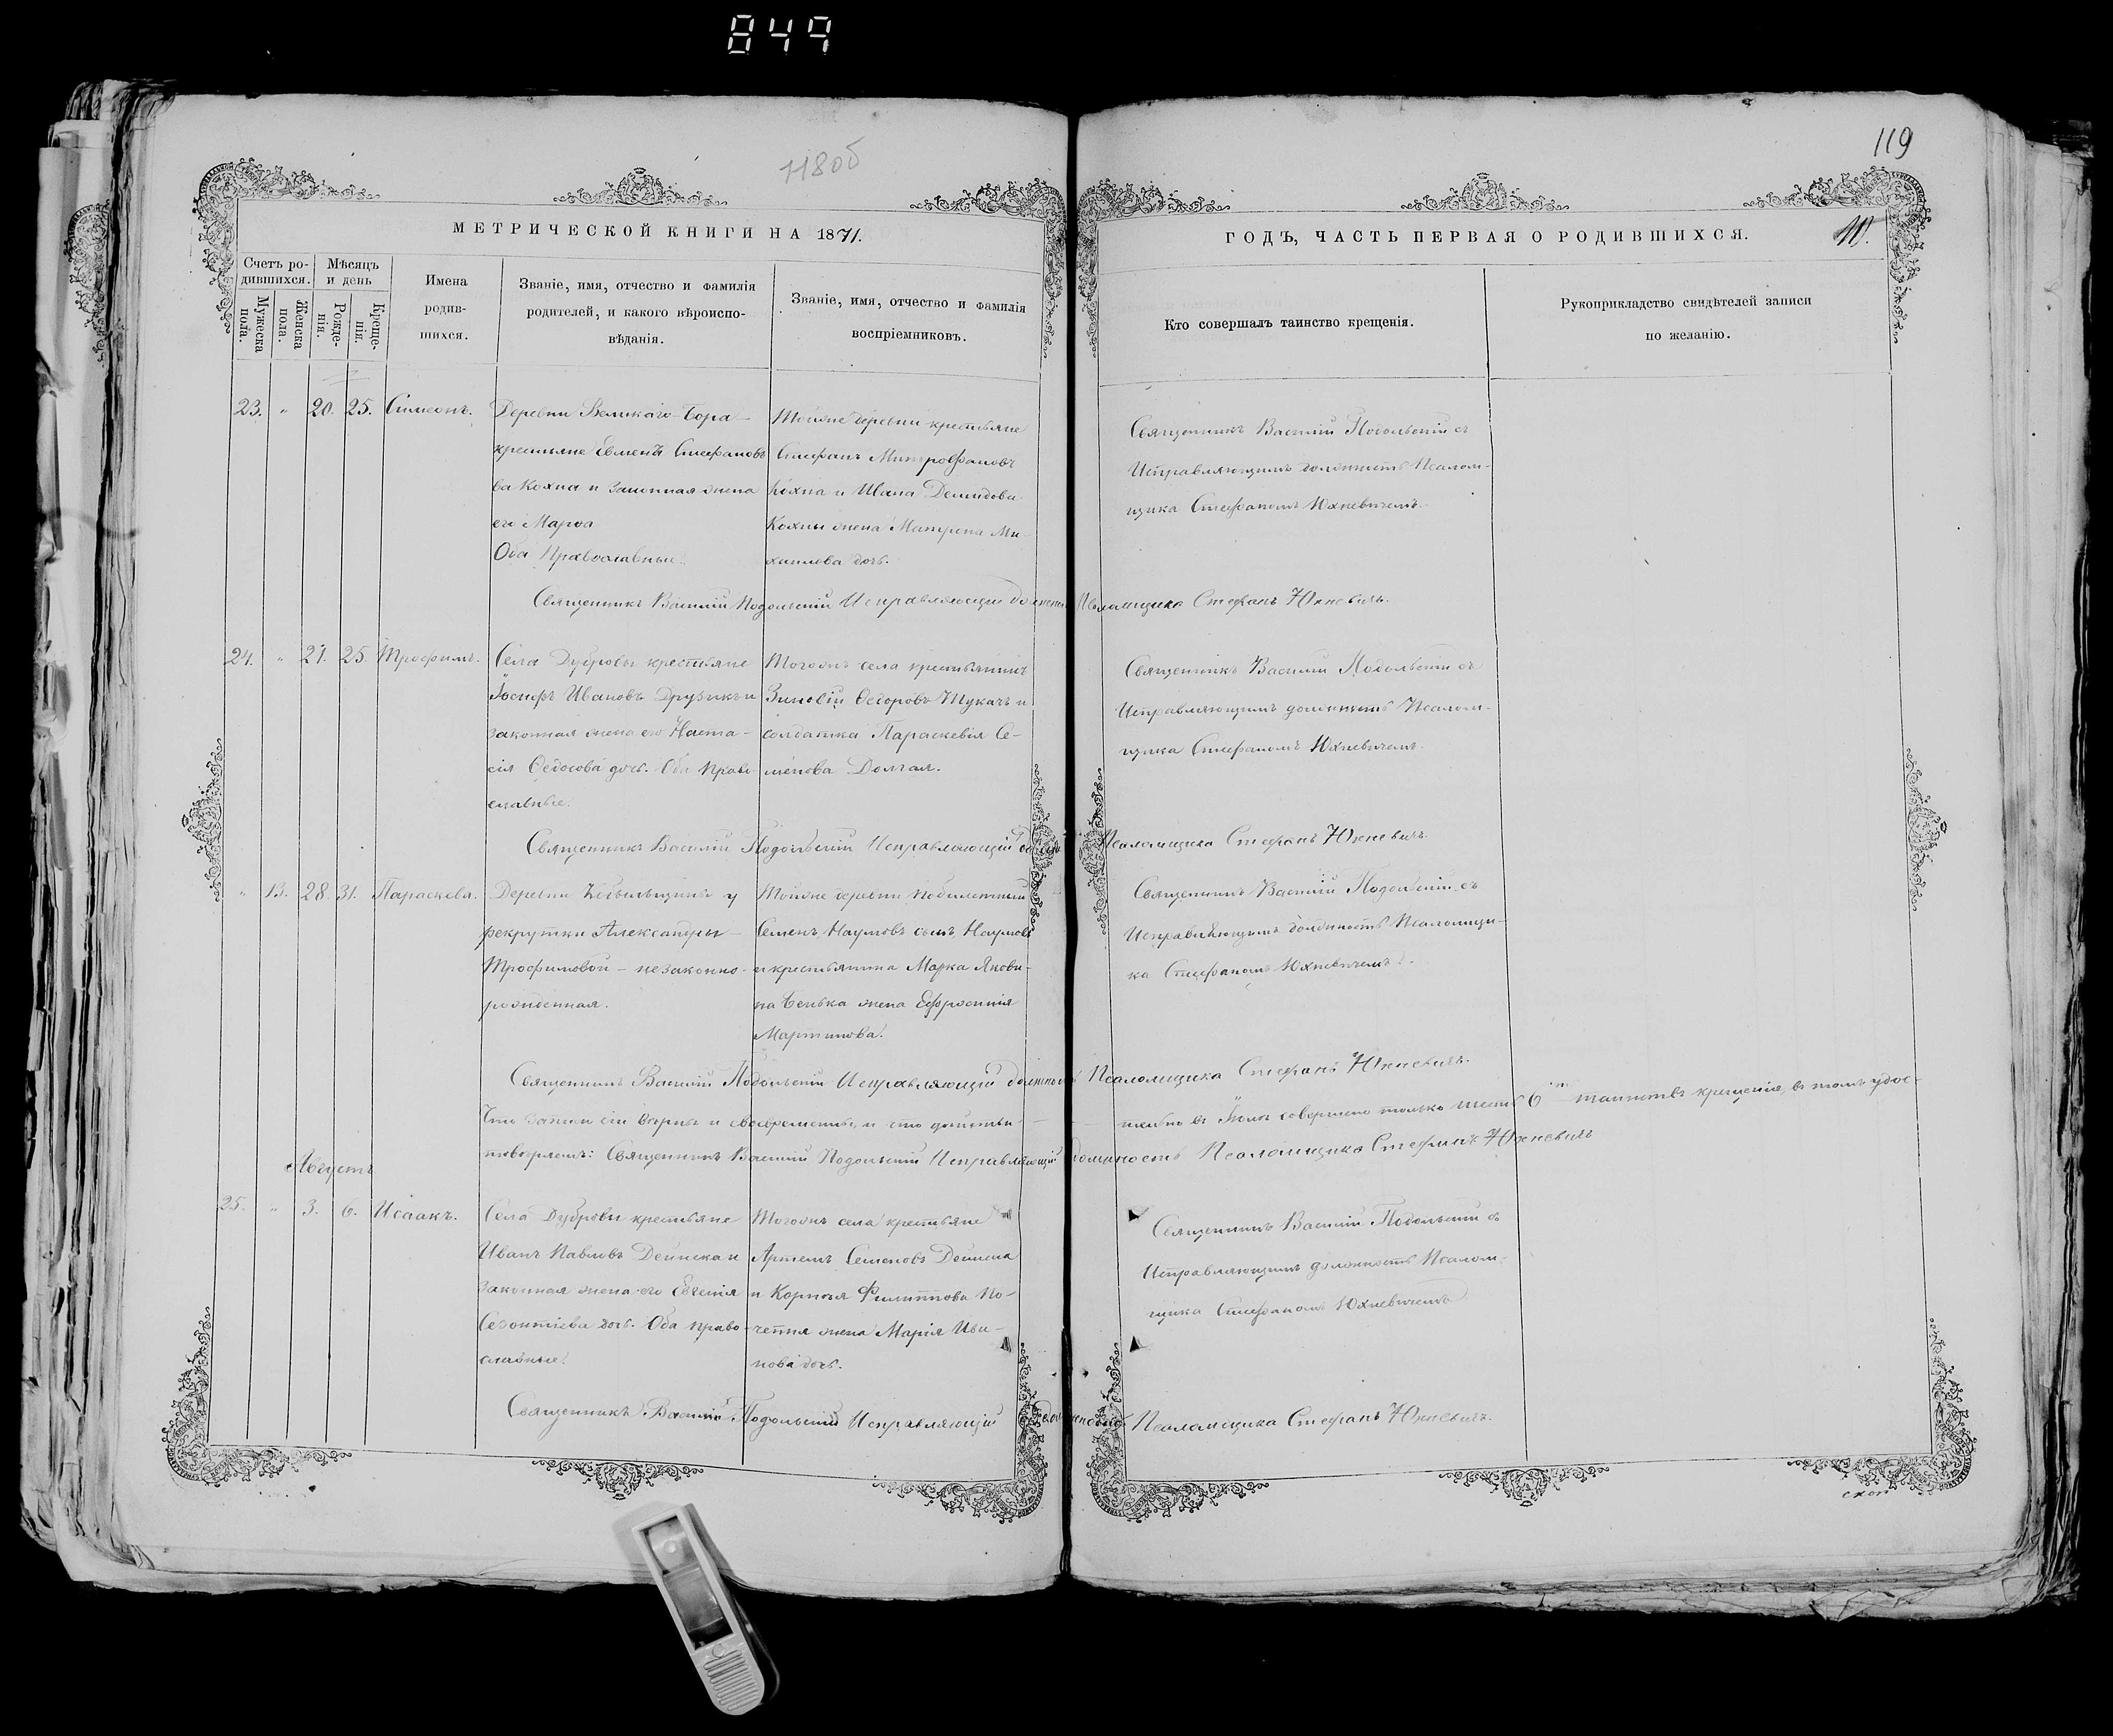 849
118об
119
МЕТРИЧЕСКОЙ КНИГИ НА 1871.
ГОДЪ, ЧАСТЬ ПЕРВАЯ О РОДИВШИХСЯ.
10.
Счетъ ро-
дившихся.
Мужеска
пола.
Женска
пола.
Мѣсяцъ
и день
Рожде-
нія.
Креще-
нія.
Имена
родив-
шихся.
Званіе, имя, отчество и фамилія
родителей, и какого вѣроиспо-
вѣданія.
Званіе, имя, отчество и фамилія
воспріемниковъ.
Кто совершалъ таинство крещенія.
Рукоприкладство свидѣтелей записи
по желанію.
23. " 20. 25. Симеонъ.
Деревни Великаго-Бора
крестьяне Евменъ Стефановъ
Кохна и законная жена
его Марѳа
Оба Православные.
Тойже деревни крестьяне
Стефанъ Митрофановъ
Кохна и Ивана Демидова
Кохны жена Матрона Ми-
хаилова дочь.
Священникъ Василій Подольскій съ
Исправляющимъ должность Псалом-
щика Стефаномъ Юхневичемъ.
Священникъ Василій Подольскій Исправляющій должность Псаломщика Стефанъ Юхневичъ.
24. " 21. 25. Трофимъ.
Села Дубровы крестьяне
Іосифъ Ивановъ Друзикъ и
законная жена его Наста-
сія Ѳедосова дочь. Оба право-
славные.
Тогожъ села крестьянинъ
Зиновій Ѳедоровъ Тукачъ и
солдатка Параскевія Се-
менова Долгая.
Священникъ Василій Подольскій съ
Исправляющимъ должность Псалом-
щика Стефаномъ Юхневичемъ.
Священникъ Василій Подольскій Исправляющій должность Псаломщика Стефанъ Юхневичъ.
" 13. 28. 31. Параскева.
Деревни Кобыльщины у
рекрутки Александры
Трофимовой - незаконно-
рожденная.
Тойже деревни
Семенъ Наумовъ сынъ Наумовъ
и крестьянина Марка Якови-
на Бенька жена Ефросинія
Мартинова.
Священникъ Василій Подольскій съ
Исправляющимъ должность Псаломщи-
ка Стефаномъ Юхневичемъ.
Священникъ Василій Подольскій Исправляющій должность Псаломщика Стефанъ Юхневичъ.
Что записи сіи вѣрны и своевременны, и что дѣйстви-
тельно въ Іюлѣ совершено только шесть 6 таинствъ крещенія, въ томъ удос-
товѣряемъ: Священникъ Василій Подольскій Исправляющій должность Псаломщика Стефанъ Юхневичъ
Августъ
25. " 3. 6. Исаакъ.
Села Дубровы крестьяне
Иванъ Павловъ Дейнека и
законная жена его Евгенія
Созонтіева дочь. Оба право-
славные.
Тогожъ села крестьяне
Артемъ Семеновъ Дейнека
и Корнея Филиппова По-
жена Марія Ива-
нова дочь.
Священникъ Василій Подольскій съ
Исправляющимъ должность Псалом-
щика Стефаномъ Юхневичемъ
Священникъ Василій Подольскій Исправляющій должность Псаломщика Стефанъ Юхневичъ.